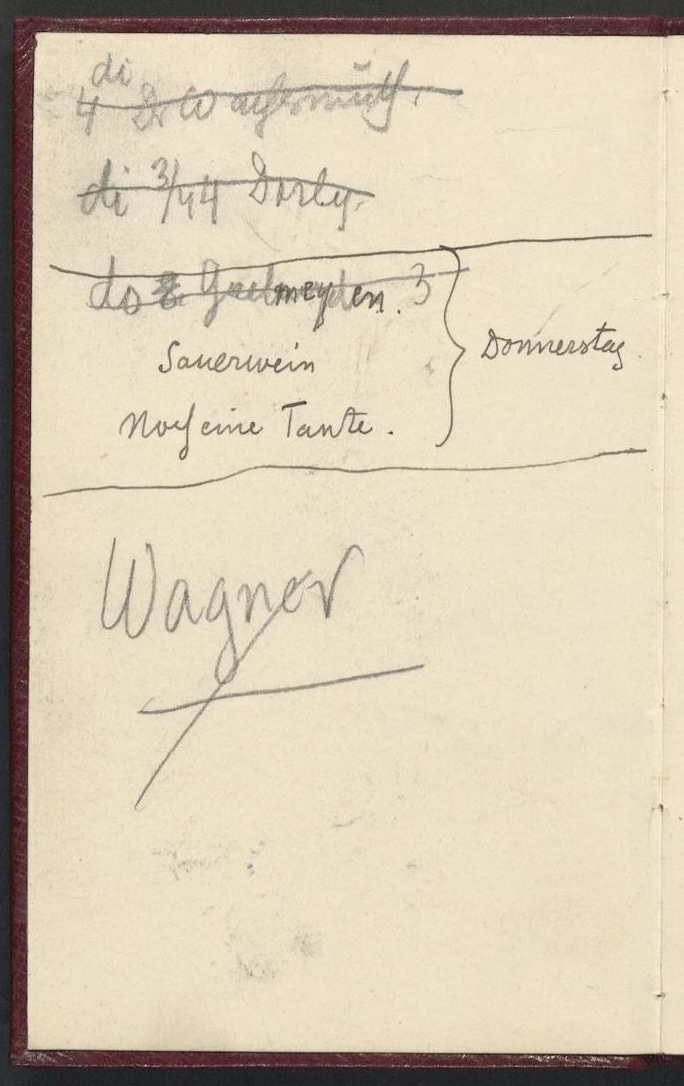 di
4 Dr Wachsmuth.
di 3/44 Dorly.
do Grelmeyden. 3
Sauerwein
Noch eine Tante.
Donnerstag
Wagner